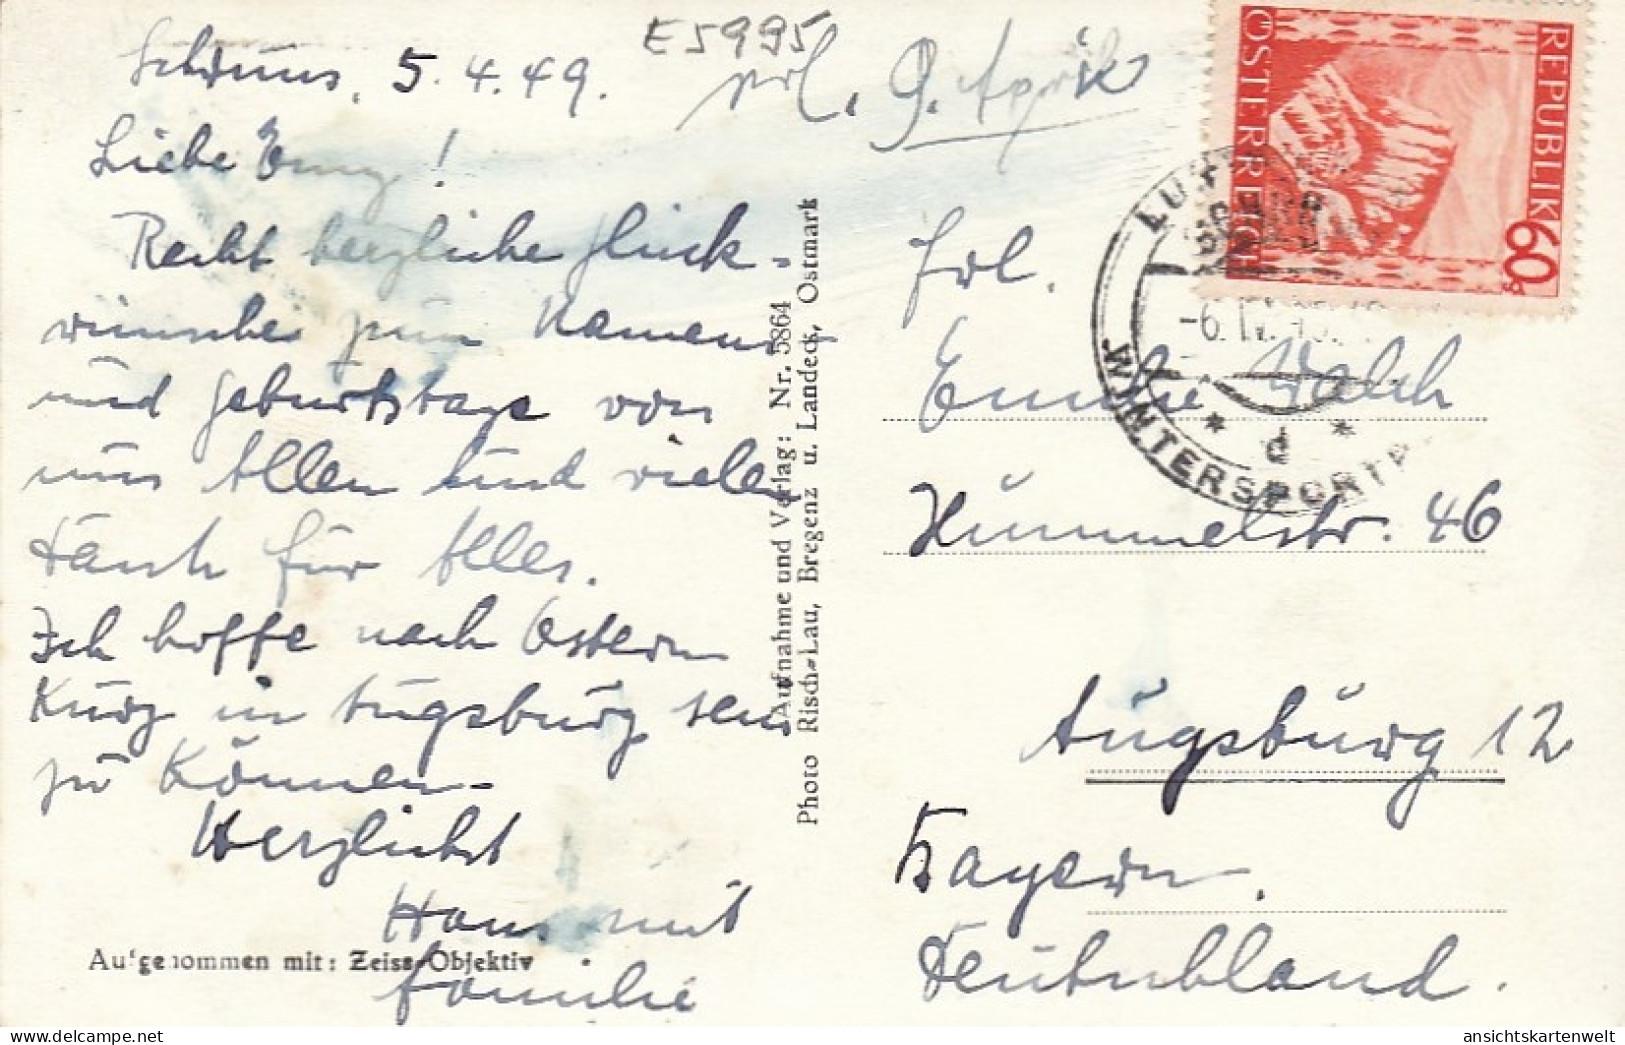 E5995
Schruns, 5.4.49.
erl. 9. April
Liebe Emy!
Recht herzliche Glück-
wünsche zum Namens
und Geburtstage von
uns Allen und vielen
Dank für Alles.
Ich hoffe nach Ostern
Kurz in Augsburg sein
zu Können-
Herzlichst
Hans mit
Familie
Aufgenommen mit: Zeiss-Objektiv
Aufnahme und Verlag: Nr. 5864
Photo Risch-Lau, Bregenz u. Landeck, Ostmark
REPUBLIK
ÖSTERREICH
60g
LUFT
SCHRUNS
-6.IV.
WINTERSPORT
d
Frl.
Emilie Walch
Hummelstr. 46
Augsburg 12
Bayern.
Deutschland.
ansichtskartenwelt